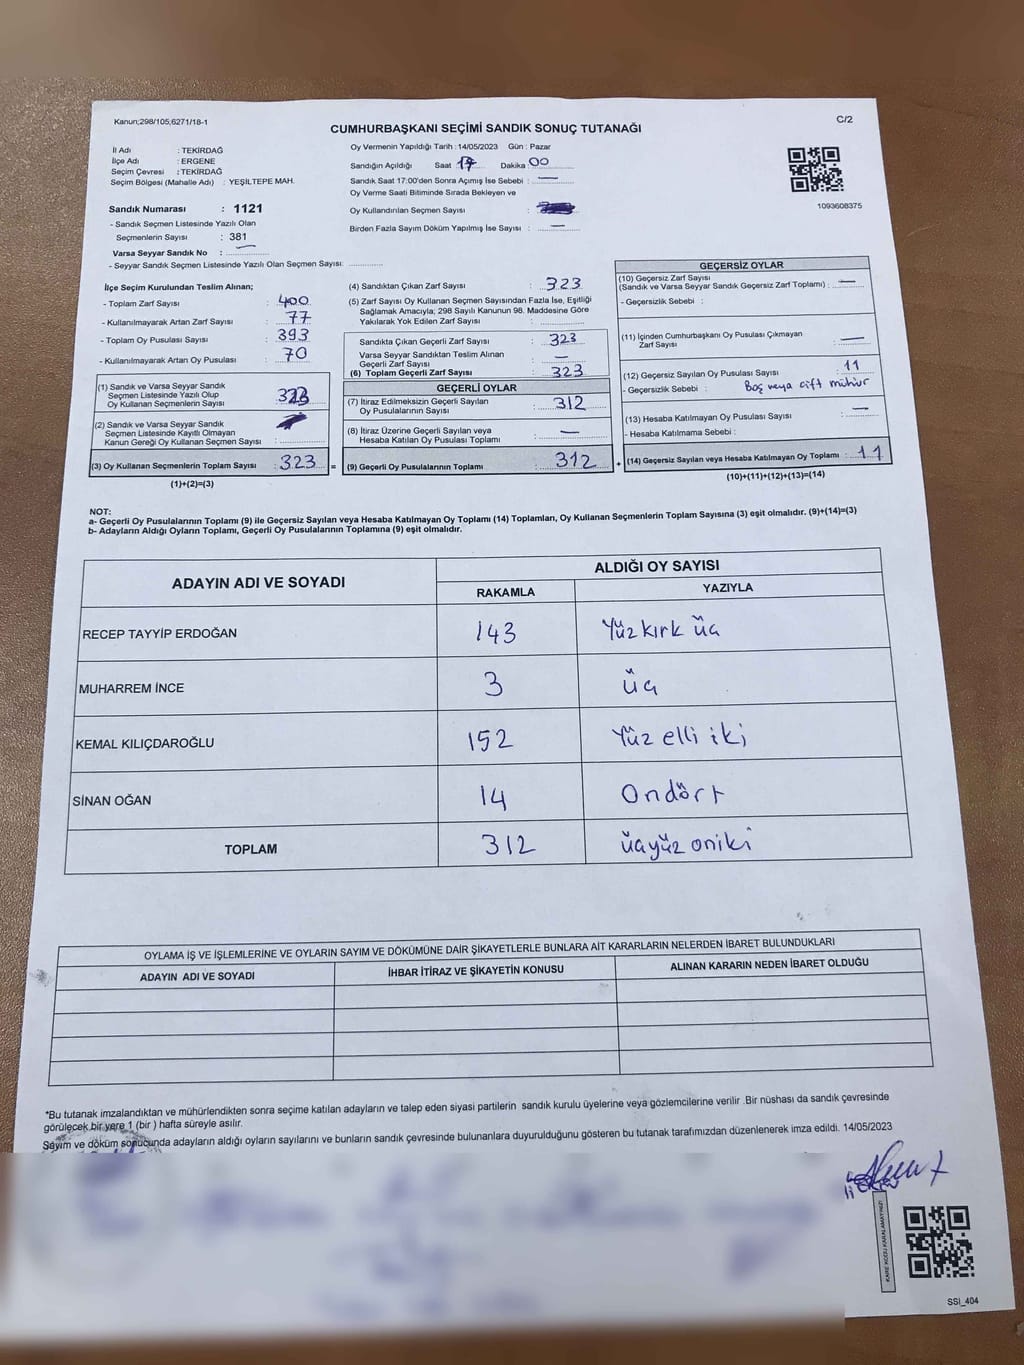 Kanun;298/105,6271/18-1
CUMHURBAŞKANI SEÇİMİ SANDIK SONUÇ TUTANAĞI
C/2
İl Adı : TEKİRDAĞ
İlçe Adı : ERGENE
Seçim Çevresi : TEKİRDAĞ
Seçim Bölgesi (Mahalle Adı) : YEŞİLTEPE MAH.
Sandık Numarası : 1121
- Sandık Seçmen Listesinde Yazılı Olan
Seçmenlerin Sayısı : 381
Varsa Seyyar Sandık No :
- Seyyar Sandık Seçmen Listesinde Yazılı Olan Seçmen Sayısı:
Oy Vermenin Yapıldığı Tarih : 14/05/2023 Gün : Pazar
Sandığın Açıldığı Saat 17 Dakika 00
Sandık Saat 17:00'den Sonra Açımış İse Sebebi : —
Oy Verme Saati Bitiminde Sırada Bekleyen ve
Oy Kullandırılan Seçmen Sayısı :
Birden Fazla Sayım Döküm Yapılmış İse Sayısı : —
1093608375
İlçe Seçim Kurulundan Teslim Alınan;
- Toplam Zarf Sayısı : 400
- Kullanılmayarak Artan Zarf Sayısı : 77
- Toplam Oy Pusulası Sayısı : 393
- Kullanılmayarak Artan Oy Pusulası : 70
(1) Sandık ve Varsa Seyyar Sandık
Seçmen Listesinde Yazılı Olup
Oy Kullanan Seçmenlerin Sayısı : 323
(2) Sandık ve Varsa Seyyar Sandık
Seçmen Listesinde Kayıtlı Olmayan
Kanun Gereği Oy Kullanan Seçmen Sayısı :
(3) Oy Kullanan Seçmenlerin Toplam Sayısı : 323 =
(1)+(2)=(3)
(4) Sandıktan Çıkan Zarf Sayısı : 323
(5) Zarf Sayısı Oy Kullanan Seçmen Sayısından Fazla İse, Eşitliği
Sağlamak Amacıyla; 298 Sayılı Kanunun 98. Maddesine Göre
Yakılarak Yok Edilen Zarf Sayısı :
Sandıkta Çıkan Geçerli Zarf Sayısı : 323
Varsa Seyyar Sandıktan Teslim Alınan
Geçerli Zarf Sayısı : —
(6) Toplam Geçerli Zarf Sayısı : 323
GEÇERLİ OYLAR
(7) İtiraz Edilmeksizin Geçerli Sayılan
Oy Pusulalarının Sayısı : 312
(8) İtiraz Üzerine Geçerli Sayılan veya
Hesaba Katılan Oy Pusulası Toplamı : —
(9) Geçerli Oy Pusulalarının Toplamı : 312 +
GEÇERSİZ OYLAR
(10) Geçersiz Zarf Sayısı
(Sandık ve Varsa Seyyar Sandık Geçersiz Zarf Toplamı) : —
- Geçersizlik Sebebi :
(11) İçinden Cumhurbaşkanı Oy Pusulası Çıkmayan
Zarf Sayısı : —
(12) Geçersiz Sayılan Oy Pusulası Sayısı : 11
- Geçersizlik Sebebi : Boş veya çift mühür
(13) Hesaba Katılmayan Oy Pusulası Sayısı : —
- Hesaba Katılmama Sebebi :
(14) Geçersiz Sayılan veya Hesaba Katılmayan Oy Toplamı : 11
(10)+(11)+(12)+(13)=(14)
NOT:
a- Geçerli Oy Pusulalarının Toplamı (9) ile Geçersiz Sayılan veya Hesaba Katılmayan Oy Toplamı (14) Toplamları, Oy Kullanan Seçmenlerin Toplam Sayısına (3) eşit olmalıdır. (9)+(14)=(3)
b- Adayların Aldığı Oyların Toplamı, Geçerli Oy Pusulalarının Toplamına (9) eşit olmalıdır.
ADAYIN ADI VE SOYADI
ALDIĞI OY SAYISI
RAKAMLA YAZIYLA
RECEP TAYYİP ERDOĞAN 143 Yüz kırk üç
MUHARREM İNCE 3 üç
KEMAL KILIÇDAROĞLU 152 Yüz elli iki
SİNAN OĞAN 14 Ondört
TOPLAM 312 üçyüz oniki
OYLAMA İŞ VE İŞLEMLERİNE VE OYLARIN SAYIM VE DÖKÜMÜNE DAİR ŞİKAYETLERLE BUNLARA AİT KARARLARIN NELERDEN İBARET BULUNDUKLARI
ADAYIN ADI VE SOYADI İHBAR İTİRAZ VE ŞİKAYETİN KONUSU ALINAN KARARIN NEDEN İBARET OLDUĞU
*Bu tutanak imzalandıktan ve mühürlendikten sonra seçime katılan adayların ve talep eden siyasi partilerin sandık kurulu üyelerine veya gözlemcilerine verilir .Bir nüshası da sandık çevresinde
görülecek bir yere 1 (bir ) hafta süreyle asılır.
Sayım ve döküm sonucunda adayların aldığı oyların sayılarını ve bunların sandık çevresinde bulunanlara duyurulduğunu gösteren bu tutanak tarafımızdan düzenlenerek imza edildi. 14/05/2023
KARE KODU KARALAMAYINIZ!
SSİ_404